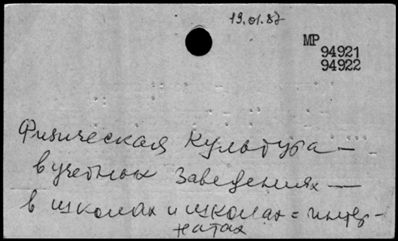 19.01.87
МР
94921
94922
Физическая культура —
в учебных заведениях —
в школах и школах = интер-
натах